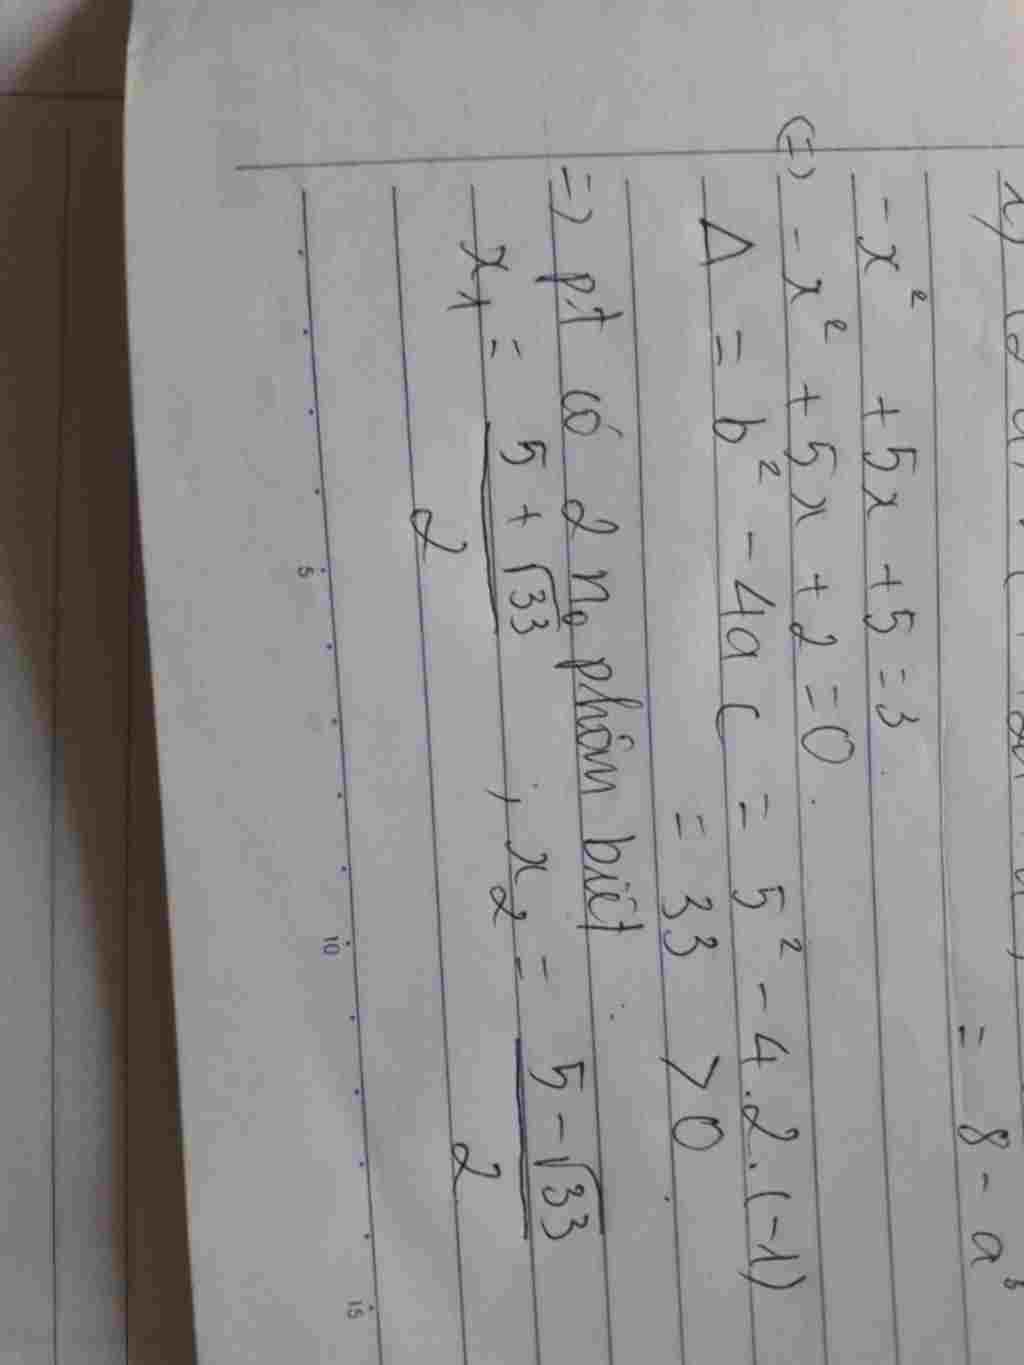 = 8 - a³
-x² + 5x + 5 = 3
(=) -x² + 5x + 2 = 0
Δ = b² - 4ac = 5² - 4.2.(-1)
= 33 > 0
=> pt có 2 n₀ phân biệt :
x₁ = (5 + √33)/2 ; x₂ = (5 - √33)/2
5 10 15